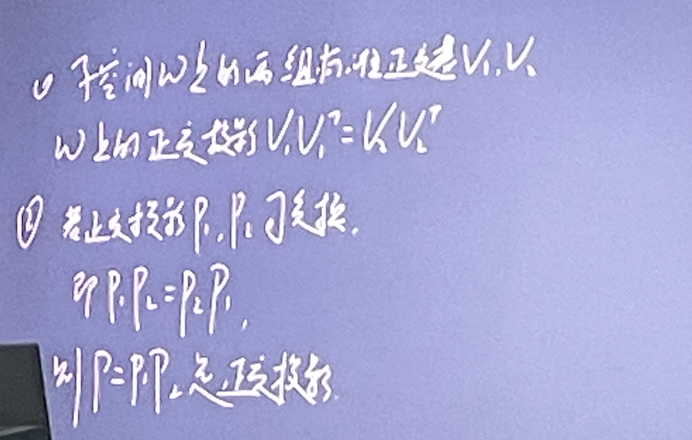 ① 子空间W上的两组标准正交基V₁,V₂
W上的正交投影V₁V₁ᵀ=V₂V₂ᵀ
② 若正交投影P₁,P₂可交换,
即P₁P₂=P₂P₁,
则P=P₁P₂是正交投影.